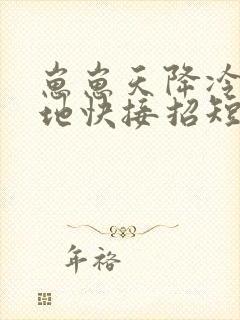 崽崽天降冷
地快接招短
年裕